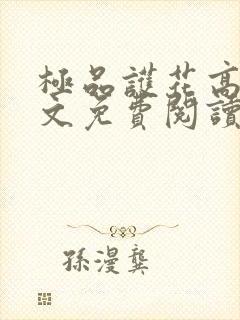 極品護花高
文免費閱讀
孫漫龔